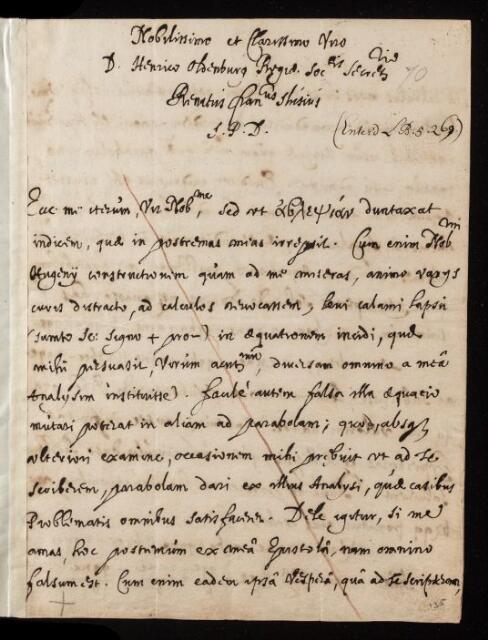 Nobilissimo et Clarissimo Viro
D. Henrico Oldenburg Regiæ Soc.etis Secret.rio
70
Renatus Fran.cus Slusius
S. P. D.
(Enterd LB. 5. 269)
Ecce me iterum, Vir Nob.me, sed ut ἀβλεψίαν duntaxat
indicem, quæ in postremas meas irrepsit. Cum enim Nob.mi
Hugenij constructionem quam ad me miseras, animo varijs
curis distracto, ad calculos revocarem, levi calami lapsu
(sumto sc: signo + pro -) in æquationem incidi, quæ
mihi persuasit, Virum acut.mum, diversam omnino a meâ
Analysim instituisse. Facilé autem falsa illa æquatio
mutari poterat in aliam ad parabolam; quod, absq
ulteriori examine, occasionem mihi præbuit ut ad te
scriberem, parabolam dari ex illius Analysi, quæ casibus
Problematis omnibus satisfaceret. Dele igitur, si me
amas, hoc postremum ex meâ Epistolâ, nam omnino
falsum est. Cum enim eadem ipsâ Vesperâ, quâ ad te scripseram,
135